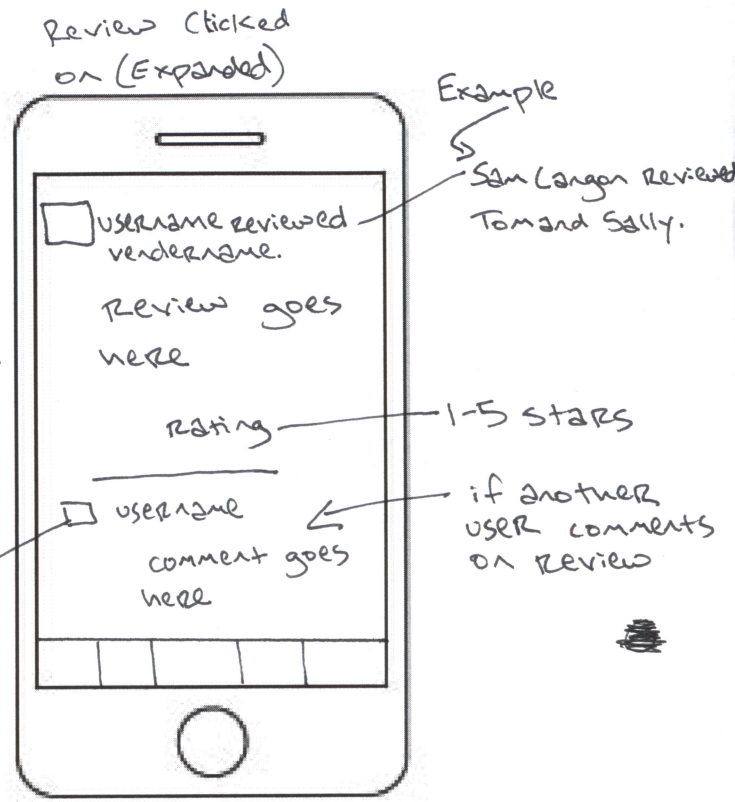 Review Clicked
on (Expanded)
Example
Sam Langon Reviewed
Tom and Sally.
username reviewed
vendername.
Review goes
here
Rating
1-5 stars
username
comment goes
here
if another
user comments
on review